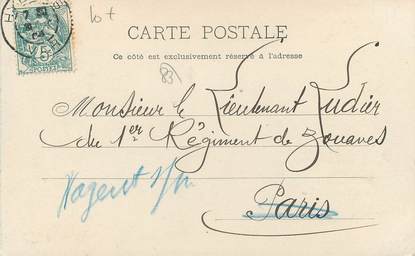 lot
CARTE POSTALE
Ce côté est exclusivement réservé à l'adresse
83
Monsieur le Lieutenant Ludier
du 1er Régiment de Zouaves
Nogent s/m
Paris